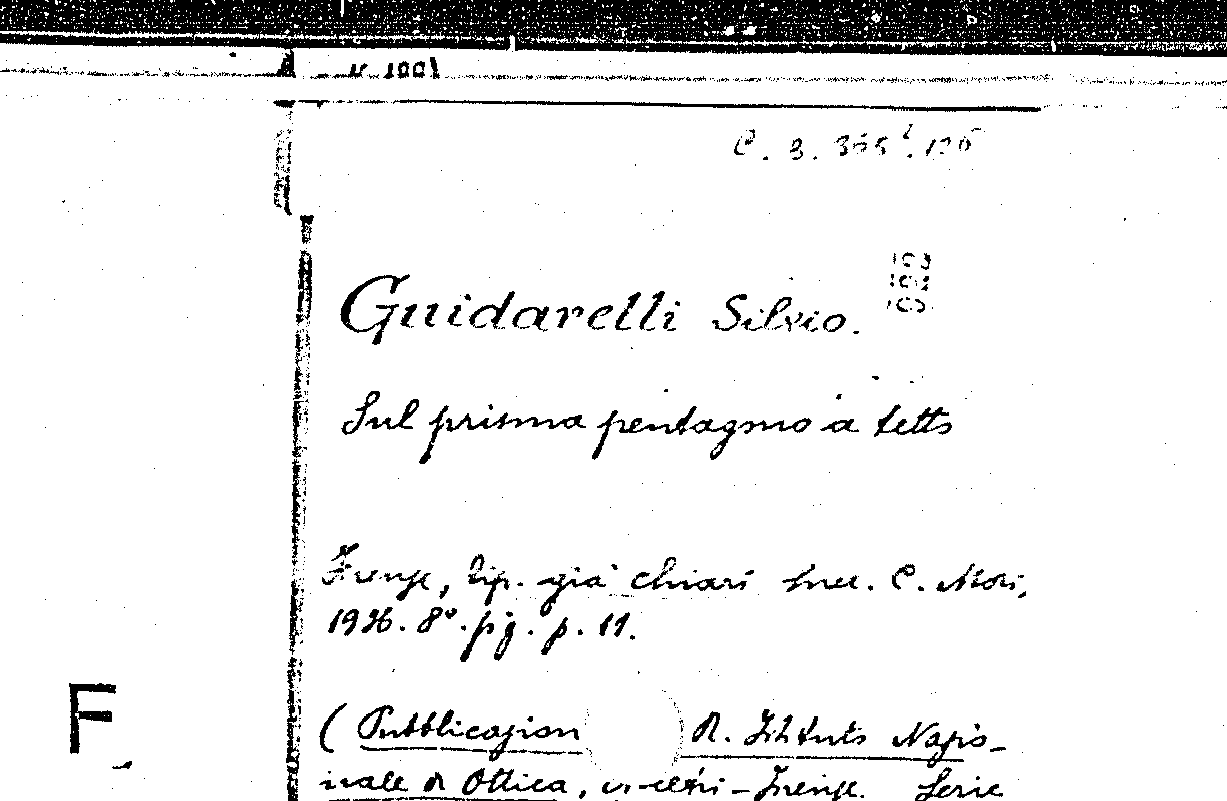 C. 3. 365².126
Guidarelli Silvio.
Sul prisma pentagono a tetto
Firenze, tip. già chiari succ. C. Mori,
1926. 8°. fig. p. 11.
( Pubblicazion R. Istituto Nazio-
nale di Ottica, Arcetri - Firenze. Serie
F